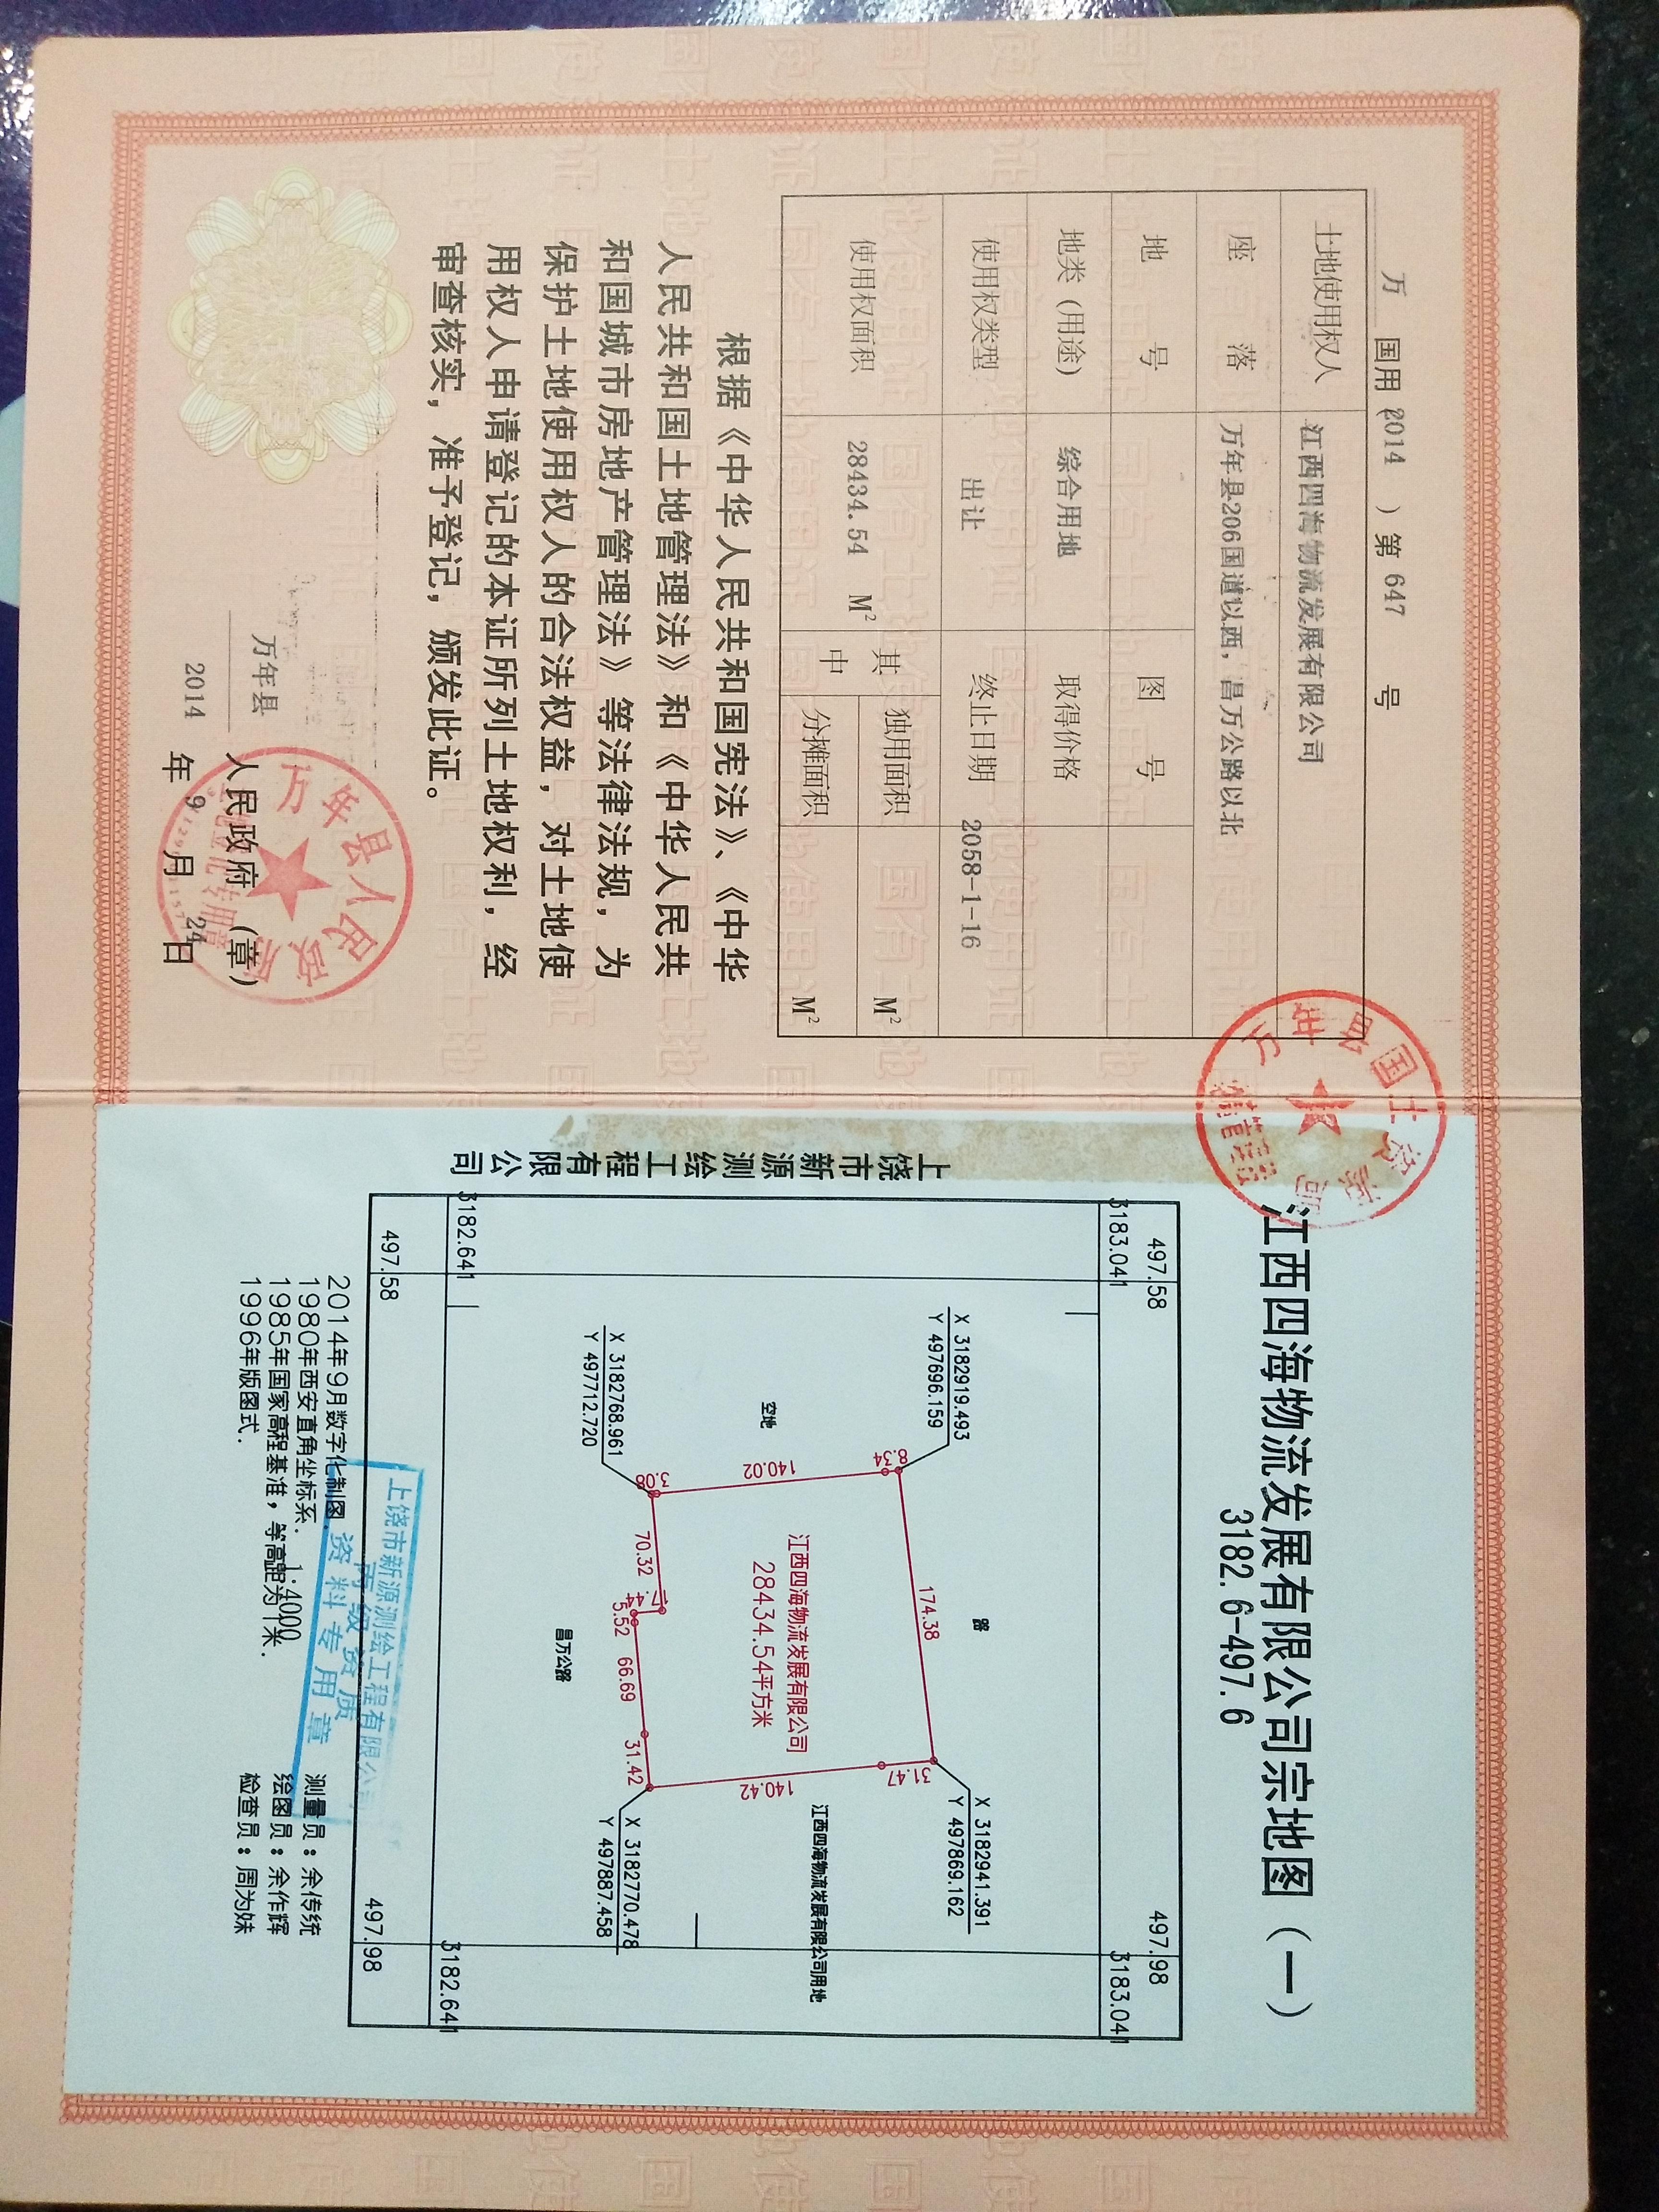 万 国用(2014 )第 647 号
土地使用权人 江西四海物流发展有限公司
座落 万年县206国道以西,昌万公路以北
地号 图号
地类(用途) 综合用地 取得价格
使用权类型 出让 终止日期 2058-1-16
使用权面积 28434.54 M² 其中 独用面积 M²
分摊面积 M²
根据《中华人民共和国宪法》、《中华
人民共和国土地管理法》和《中华人民共
和国城市房地产管理法》等法律法规,为
保护土地使用权人的合法权益,对土地使
用权人申请登记的本证所列土地权利,经
审查核实,准予登记,颁发此证。
万年县 人民政府(章)
2014 年 9 月 24 日
万年县人民政府
万年县国土资源局
江西四海物流发展有限公司宗地图(一)
3182.6-497.6
497.58 497.98
3183.041 3183.041
X 3182919.493
Y 497696.159
X 3182941.391
Y 497869.162
路
8.34 174.38 31.47
江西四海物流发展有限公司
28434.54平方米
空地
140.02 140.42
江西四海物流发展有限公司用地
X 3182768.961
Y 497712.720
3.08 70.32 5.52 66.69 31.42
X 3182770.478
Y 497887.458
昌万公路
3182.641 3182.641
497.58 497.98
上饶市新源测绘工程有限公司
2014年9月数字化制图.
1980年西安直角坐标系.
1985年国家高程基准,等高距为1米.
1996年版图式.
1:4000
测量员:余传统
绘图员:余作辉
检查员:周为妹
上饶市新源测绘工程有限公司
丙级资质
资料专用章